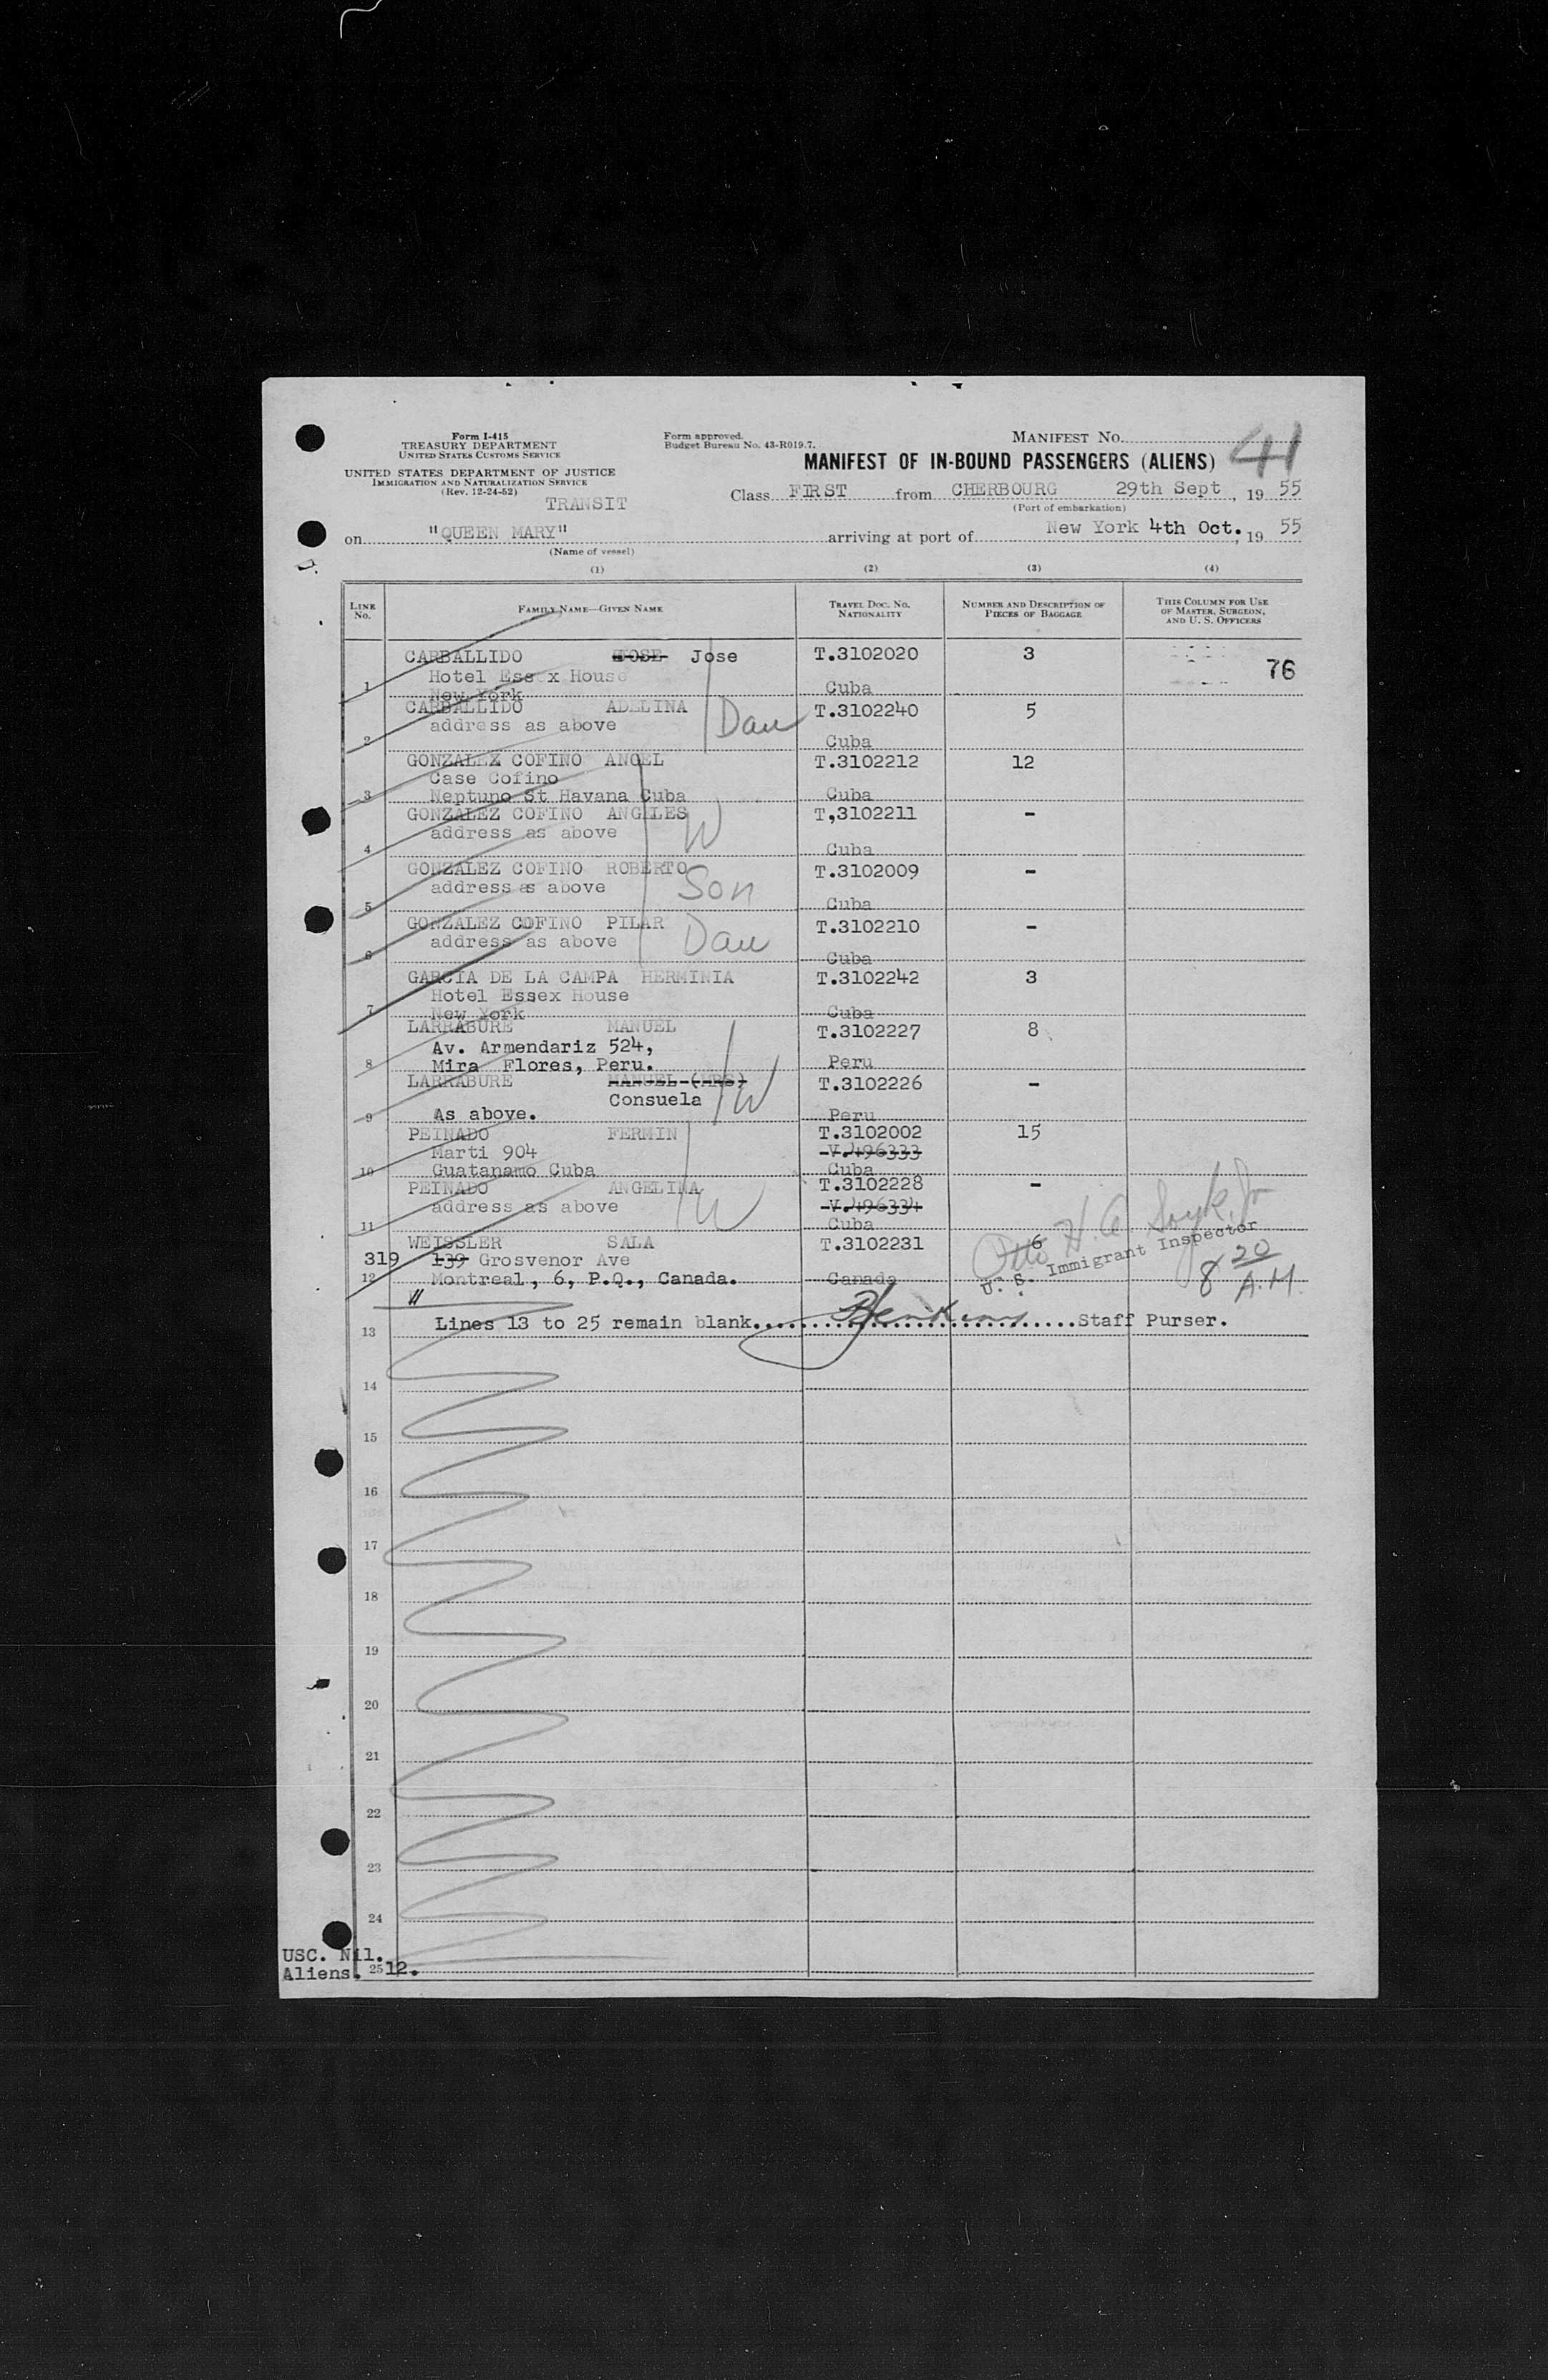 41
Form I-415
TREASURY DEPARTMENT
UNITED STATES CUSTOMS SERVICE
UNITED STATES DEPARTMENT OF JUSTICE
IMMIGRATION AND NATURALIZATION SERVICE
(Rev. 12-24-52)
TRANSIT
Form approved.
Budget Bureau No. 43-R019.7.
MANIFEST NO.
MANIFEST OF IN-BOUND PASSENGERS (ALIENS)
Class FIRST from CHERBOURG 29th Sept, 19 55
(Port of embarkation)
on "QUEEN MARY" arriving at port of New York 4th Oct., 19 55
(Name of vessel)
(1) (2) (3) (4)
LINE NO. FAMILY NAME—GIVEN NAME TRAVEL DOC. NO. NATIONALITY NUMBER AND DESCRIPTION OF PIECES OF BAGGAGE THIS COLUMN FOR USE OF MASTER, SURGEON, AND U. S. OFFICERS
CARBALLIDO JOSE Jose T.3102020 3 76
Hotel Ess x House
1 New York Cuba
CARBALLIDO ADELINA Dau T.3102240 5
address as above
2 Cuba
GONZALEX COFINO ANGEL T.3102212 12
Case Cofino
3 Neptuno St Havana Cuba Cuba
GONZALEZ COFINO ANGELES W T,3102211 -
address as above
4 Cuba
GONZALEZ COFINO ROBERTO Son T.3102009 -
address as above
5 Cuba
GONZALEZ COFINO PILAR Dau T.3102210 -
address as above
6 Cuba
GARCIA DE LA CAMPA HERMINIA T.3102242 3
Hotel Essex House
7 New York Cuba
LARRABURE MANUEL T.3102227 8
Av. Armendariz 524,
8 Mira Flores, Peru. Peru
LARRABURE MANUEL (MRS) W T.3102226 -
Consuela
9 As above. Peru
PEINADO FERMIN T.3102002 15
Marti 904 V.496333
10 Guatanamo Cuba Cuba
PEINADO ANGELINA W T.3102228 -
address as above V.496334
11 Cuba
WEISSLER SALA T.3102231 6
319 139 Grosvenor Ave
12 Montreal, 6, P.Q., Canada. Canada
U. S. Immigrant Inspector
8 20 A.M.
13 Lines 13 to 25 remain blank..............................Staff Purser.
14
15
16
17
18
19
20
21
22
23
24
USC. Nil.
Aliens. 25 12.